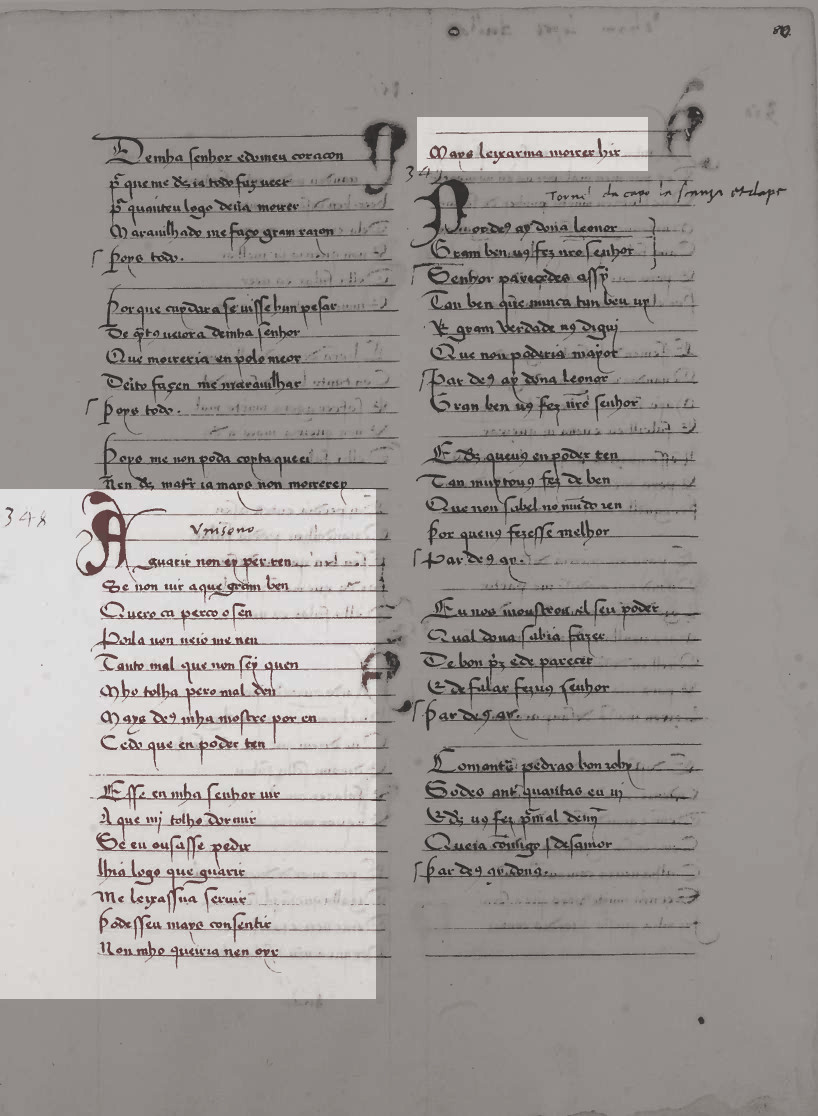 Demha senhor edomeu coracon
p̃ que me d̃s ia todo faz veer
p̃ quanteu logo deuia morrer
Marauilhado me faço gram razon
Poys todo.
Por que cuydara se uisse hun pesar
De q̃to ueiora demha senhor
Que morreria en polo meor
Deito façen me marauilhar
Poys todo.
Poys me non poda coyta queei
Nen d̃s matar ia mays non morrerey
348
Vnisono
A guarir non ey per ren
Se non uir a que gram ben
Quero ca perco o sen
Poila non ueio me nen
Tanto mal que non sey quen
Mho tolha pero mal den
Mays de9 mha mostre por en
Cedo que en poder ten
Esse en mha senhor uir
A que mi tolho dormir
Se eu ousasse pedir
lhia logo que guarir
Me leixassua seruir
Podesseu mays consentir
Non mho queiria nen oyr
Mays leixarma morrer hir
349
Torna da capo la stanza
Por de9 ay dona leonor
Gram ben u9 fez nr̃o senhor
Senhor parecedes assy
Tan ben que nunca tan ben uy
E gram verdade u9 digui
Que non poderia mayor
Par de9 ay dona leonor
Gran ben u9 fez nr̃o senhor
E d̃s queu9 en poder ten
Tan muytou9 fez de ben
Que non sabel no mũdo ren
Por queu9 fezesse melhor
Par de9 ay.
En uos mostrou el seu poder
Qual dona sabia fazer
De bon p̃z e de parecer
E de falar fezu9 senhor
Par de9 ay.
Comant̃ pedras bon roby
Sodes ant̃ quantas eu ui
E d̃s u9 fez
Par de9 ay dona.